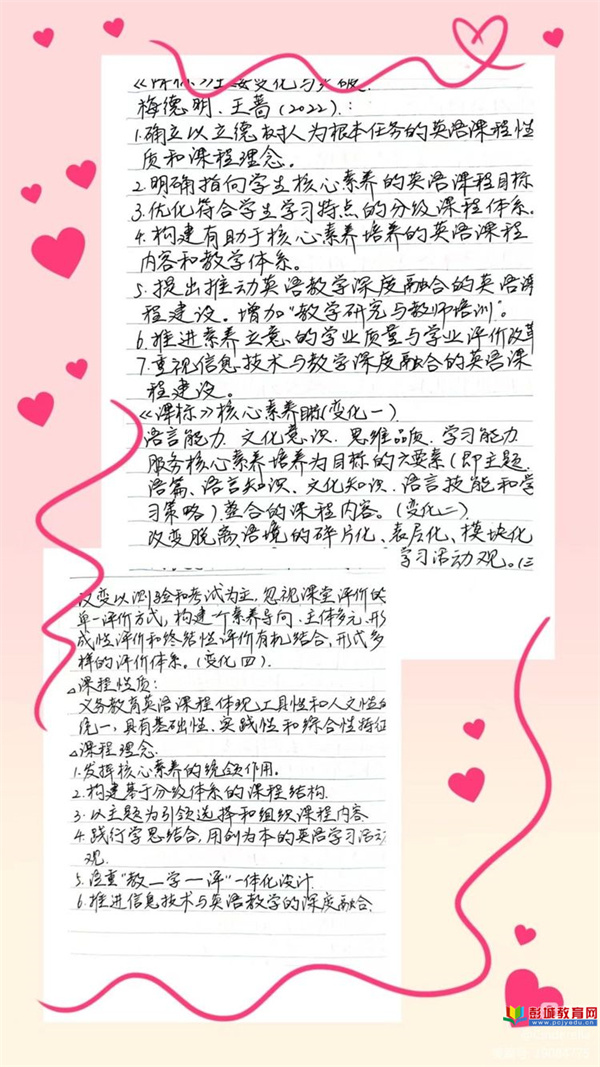 《课标》主要变化与突破
梅德明、王蔷(2022):
1.确立以立德树人为根本任务的英语课程性
质和课程理念。
2.明确指向学生核心素养的英语课程目标
3.优化符合学生学习特点的分级课程体系。
4.构建有助于核心素养培养的英语课程
内容和教学体系。
5.提出推动英语教学深度融合的英语课
程建设。增加“教学研究与教师培训”。
6.推进素养立意、的学业质量与学业评价改革
7.重视信息技术与教学深度融合的英语课
程建设。
《课标》核心素养 (变化一)
语言能力、文化意识、思维品质、学习能力
服务核心素养培养为目标的六要素(即主题、
语篇、语言知识、文化知识、语言技能和学
习策略)整合的课程内容。(变化二)
改变脱离语境的碎片化、表层化、模块化
学习活动观。(三
改变以测验和考试为主,忽视课堂评价的
单一评价方式,构建一个素养导向、主体多元、形
成性评价和终结性评价有机结合,形式多
样的评价体系。(变化四)
△课程性质:
义务教育英语课程体现工具性和人文性的
统一,具有基础性、实践性和综合性特征
△课程理念:
1.发挥核心素养的统领作用。
2.构建基于分级体系的课程结构
3.以主题为引领选择和组织课程内容
4.践行学思结合,用创为本的英语学习活动
观.
5.注重“教—学—评”一体化设计.
6.推进信息技术与英语教学的深度融合.
彭城教育网
www.pcjyedu.cn